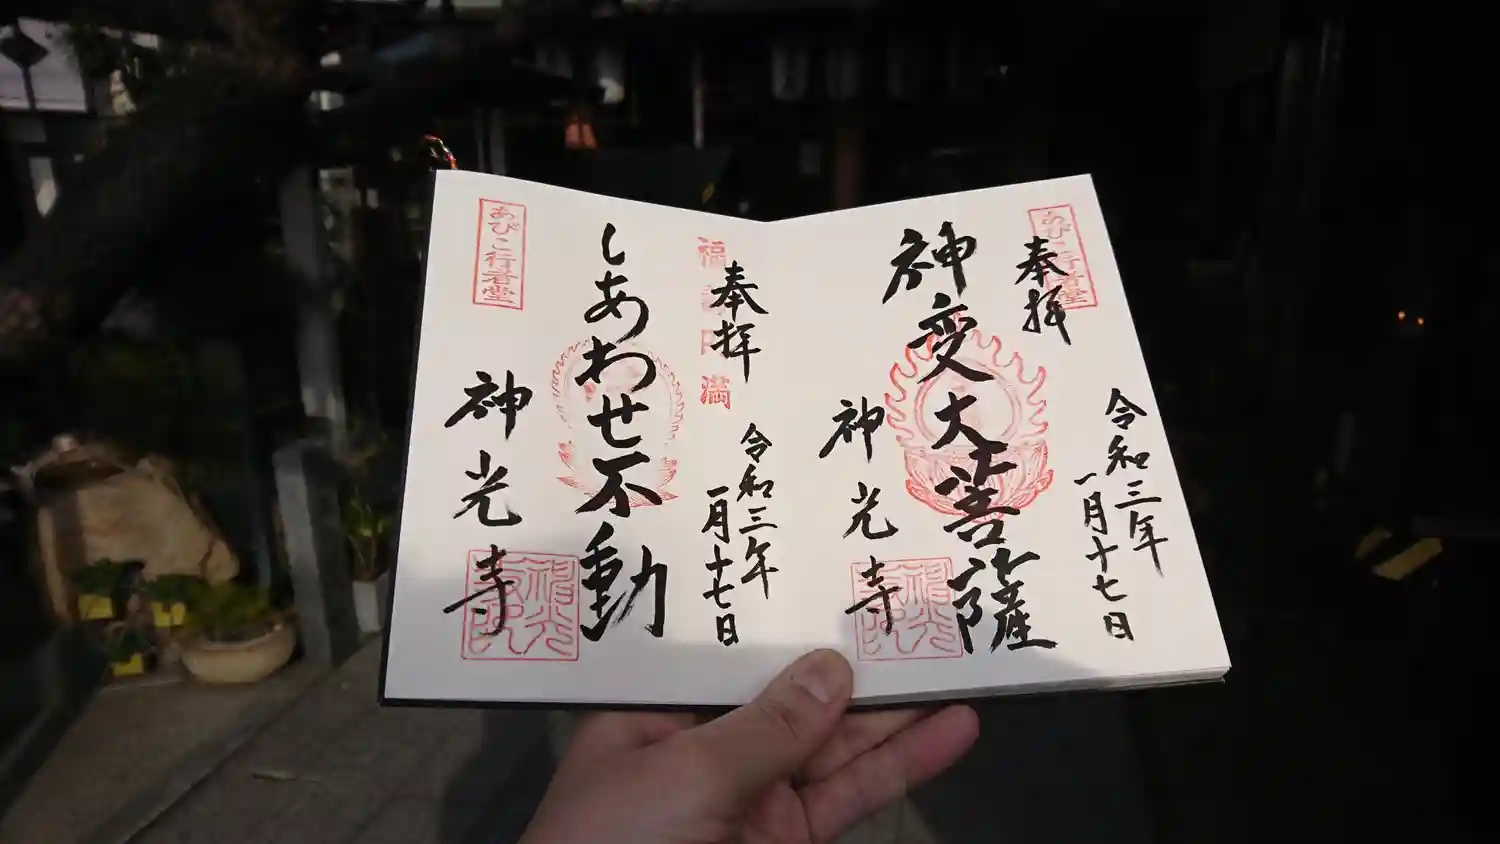 あびこ行者堂
奉拝
令和三年
一月十七日
神変大菩薩
神光寺
福寿円満
奉拝
令和三年
一月十七日
しあわせ不動
あびこ行者堂
神光寺